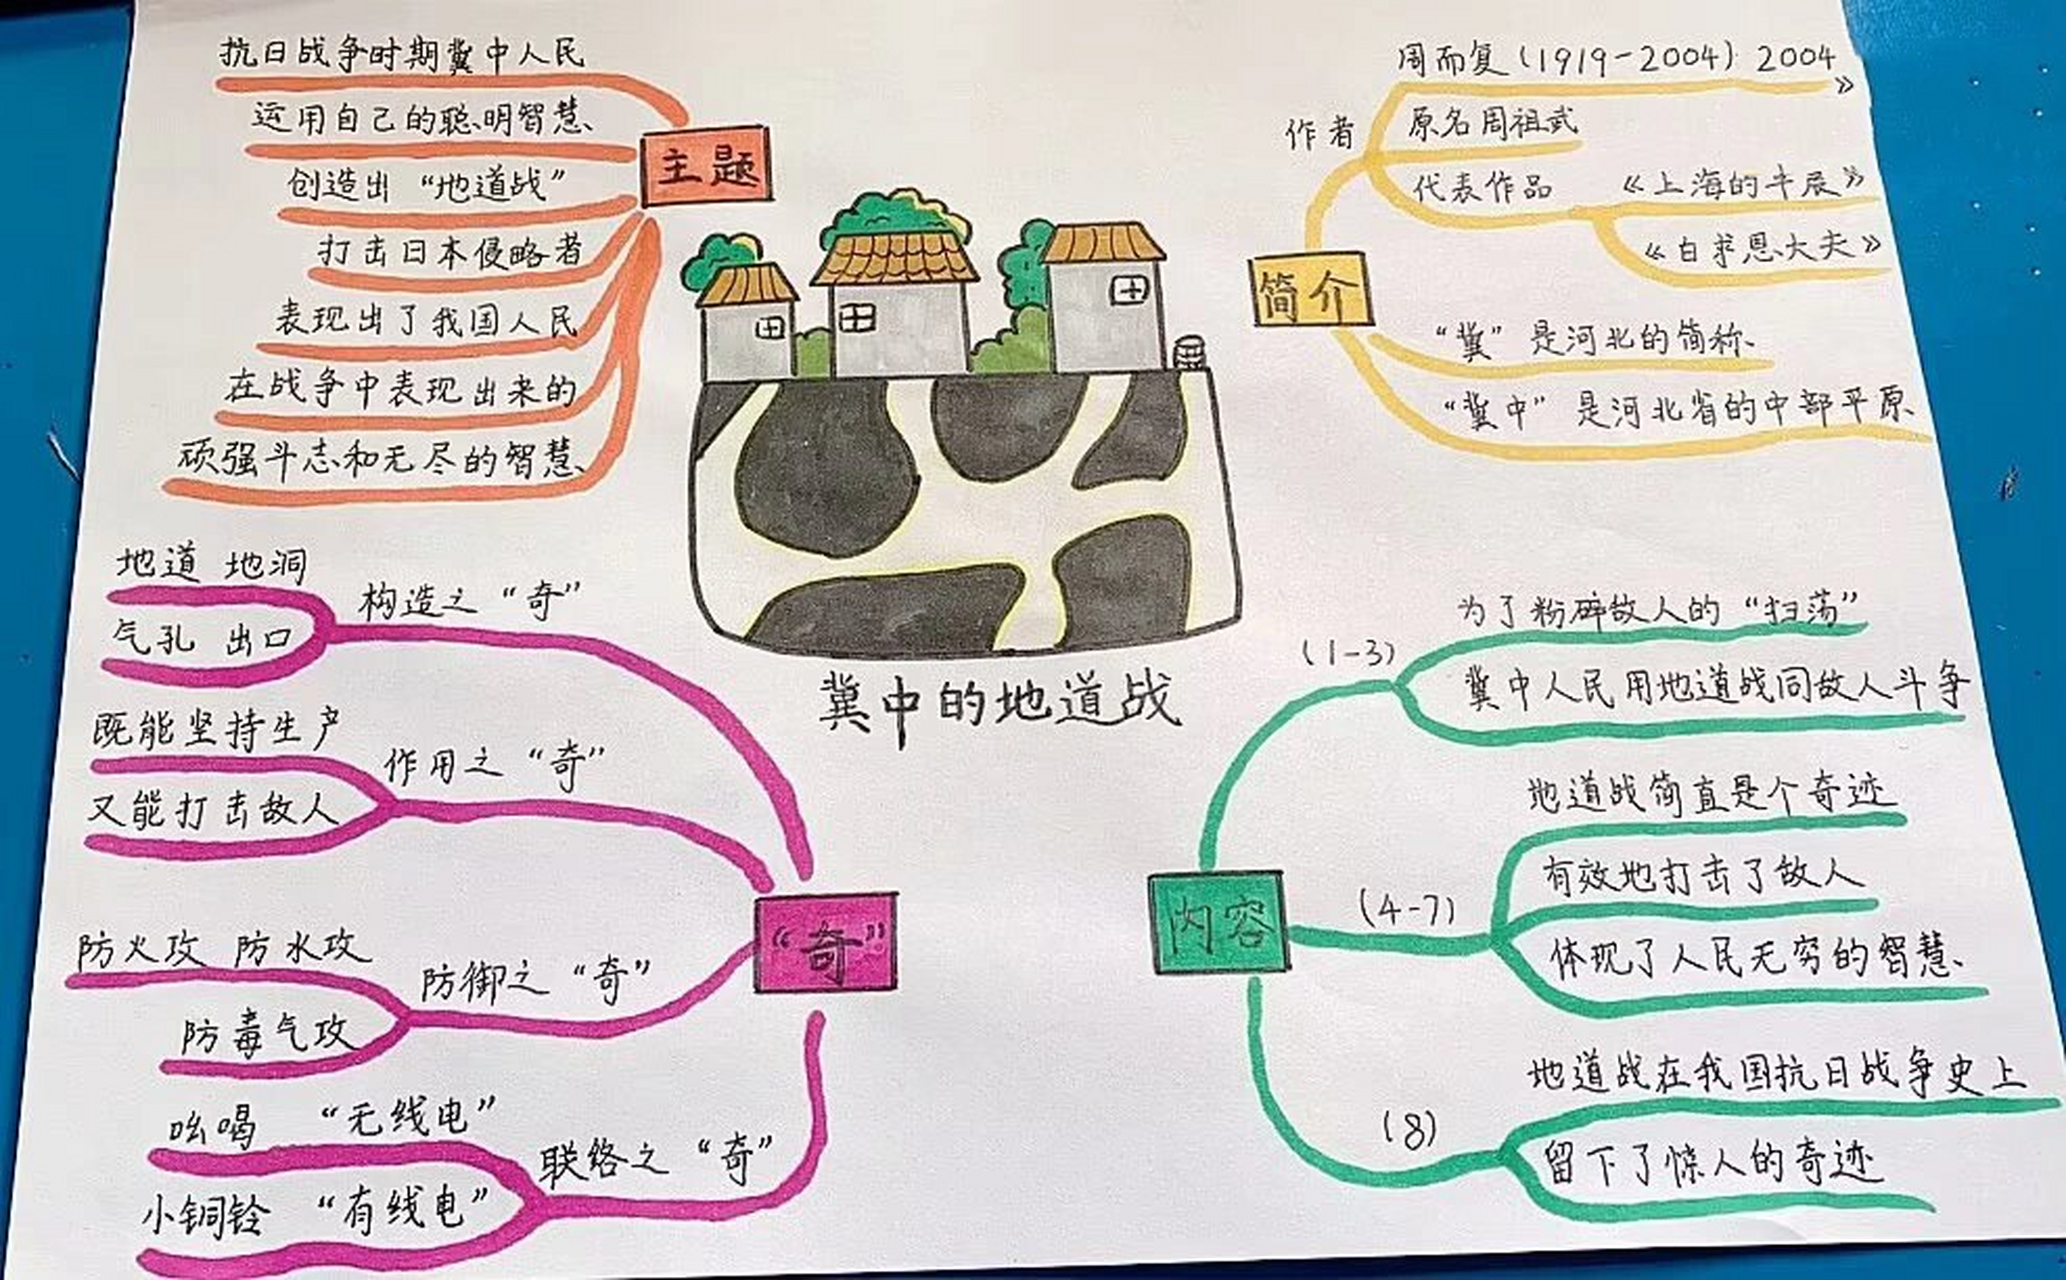 抗日战争时期冀中人民
运用自己的聪明智慧
创造出 “地道战”
打击日本侵略者
表现出了我国人民
在战争中表现出来的
顽强斗志和无尽的智慧
主题
周而复(1919-2004) 2004
》
作者
原名周祖武
代表作品 《上海的牛辰》
《白求恩大夫》
简介
“冀” 是河北的简称
“冀中” 是河北省的中部平原
冀中的地道战
地道 地洞
气孔 出口
构造之 “奇”
既能坚持生产
又能打击敌人
作用之 “奇”
防火攻 防水攻
防毒气攻
防御之 “奇”
吆喝 “无线电”
小铜铃 “有线电”
联络之 “奇”
“奇”
(1-3)
为了粉碎敌人的 “扫荡”
冀中人民用地道战同敌人斗争
内容
(4-7)
地道战简直是个奇迹
有效地打击了敌人
体现了人民无穷的智慧
(8)
地道战在我国抗日战争史上
留下了惊人的奇迹